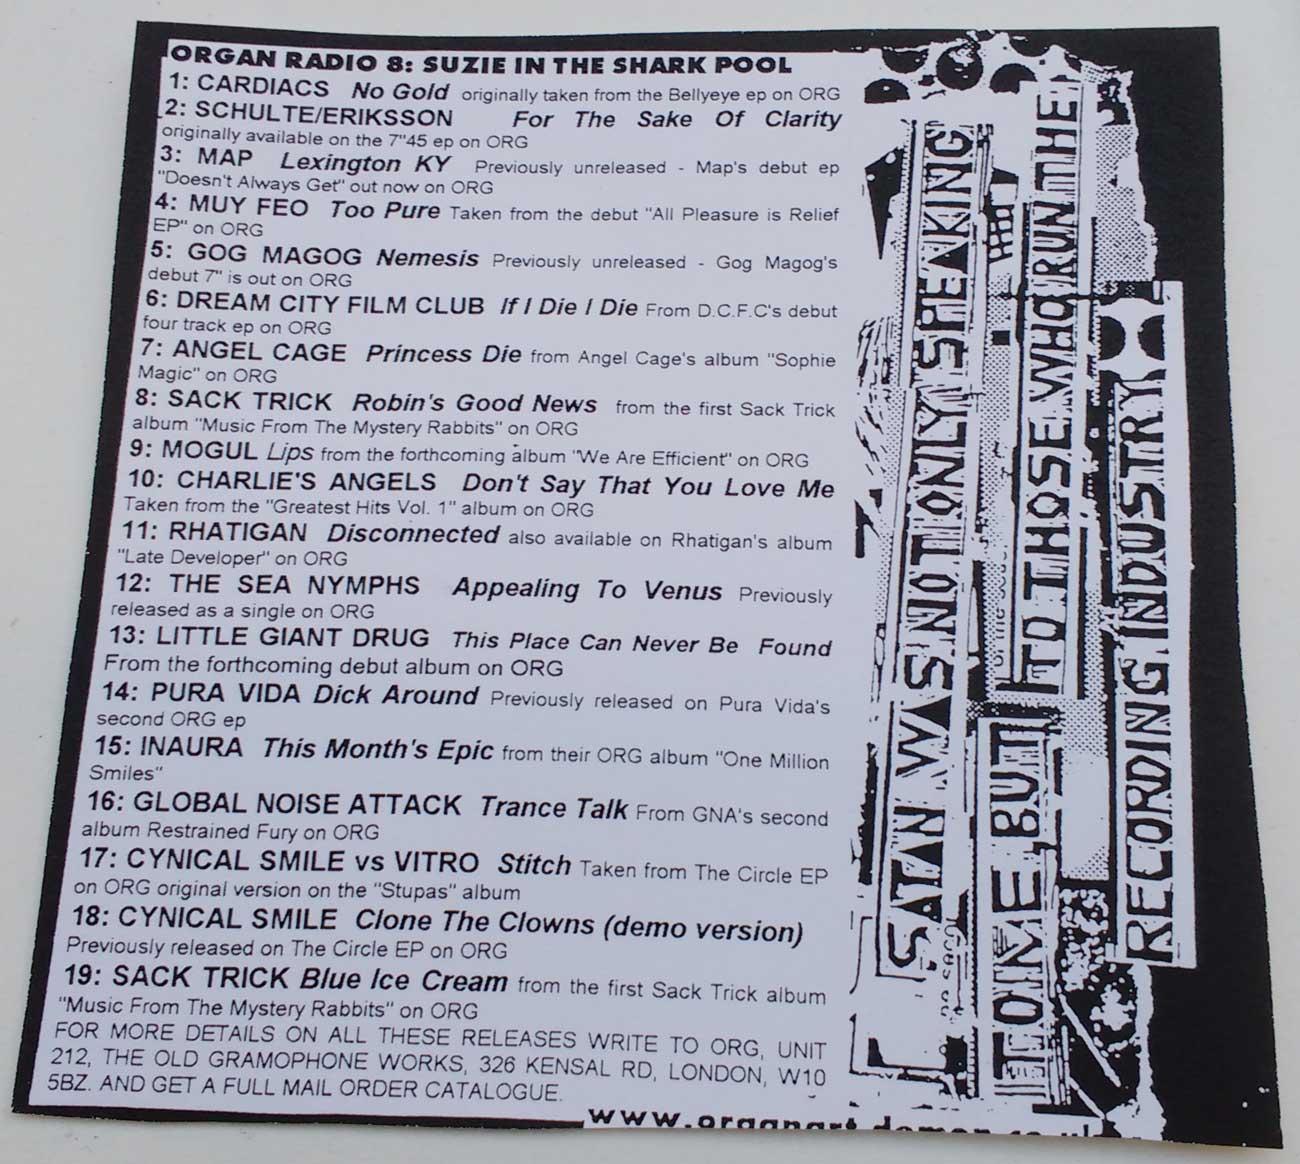 ORGAN RADIO 8: SUZIE IN THE SHARK POOL
1: CARDIACS No Gold originally taken from the Bellyeye ep on ORG
2: SCHULTE/ERIKSSON For The Sake Of Clarity
originally available on the 7"45 ep on ORG
3: MAP Lexington KY Previously unreleased - Map's debut ep
"Doesn't Always Get" out now on ORG
4: MUY FEO Too Pure Taken from the debut "All Pleasure is Relief
EP" on ORG
5: GOG MAGOG Nemesis Previously unreleased - Gog Magog's
debut 7" is out on ORG
6: DREAM CITY FILM CLUB If I Die I Die From D.C.F.C's debut
four track ep on ORG
7: ANGEL CAGE Princess Die from Angel Cage's album "Sophie
Magic" on ORG
8: SACK TRICK Robin's Good News from the first Sack Trick
album "Music From The Mystery Rabbits" on ORG
9: MOGUL Lips from the forthcoming album "We Are Efficient" on ORG
10: CHARLIE'S ANGELS Don't Say That You Love Me
Taken from the "Greatest Hits Vol. 1" album on ORG
11: RHATIGAN Disconnected also available on Rhatigan's album
"Late Developer" on ORG
12: THE SEA NYMPHS Appealing To Venus Previously
released as a single on ORG
13: LITTLE GIANT DRUG This Place Can Never Be Found
From the forthcoming debut album on ORG
14: PURA VIDA Dick Around Previously released on Pura Vida's
second ORG ep
15: INAURA This Month's Epic from their ORG album "One Million
Smiles"
16: GLOBAL NOISE ATTACK Trance Talk From GNA's second
album Restrained Fury on ORG
17: CYNICAL SMILE vs VITRO Stitch Taken from The Circle EP
on ORG original version on the "Stupas" album
18: CYNICAL SMILE Clone The Clowns (demo version)
Previously released on The Circle EP on ORG
19: SACK TRICK Blue Ice Cream from the first Sack Trick album
"Music From The Mystery Rabbits" on ORG
FOR MORE DETAILS ON ALL THESE RELEASES WRITE TO ORG, UNIT
212, THE OLD GRAMOPHONE WORKS, 326 KENSAL RD, LONDON, W10
5BZ. AND GET A FULL MAIL ORDER CATALOGUE.
www.organart.demon.co.uk
SATAN WAS NOT ONLY SPEAKING
TO ME, BUT TO THOSE WHO RUN THE
RECORDING INDUSTRY